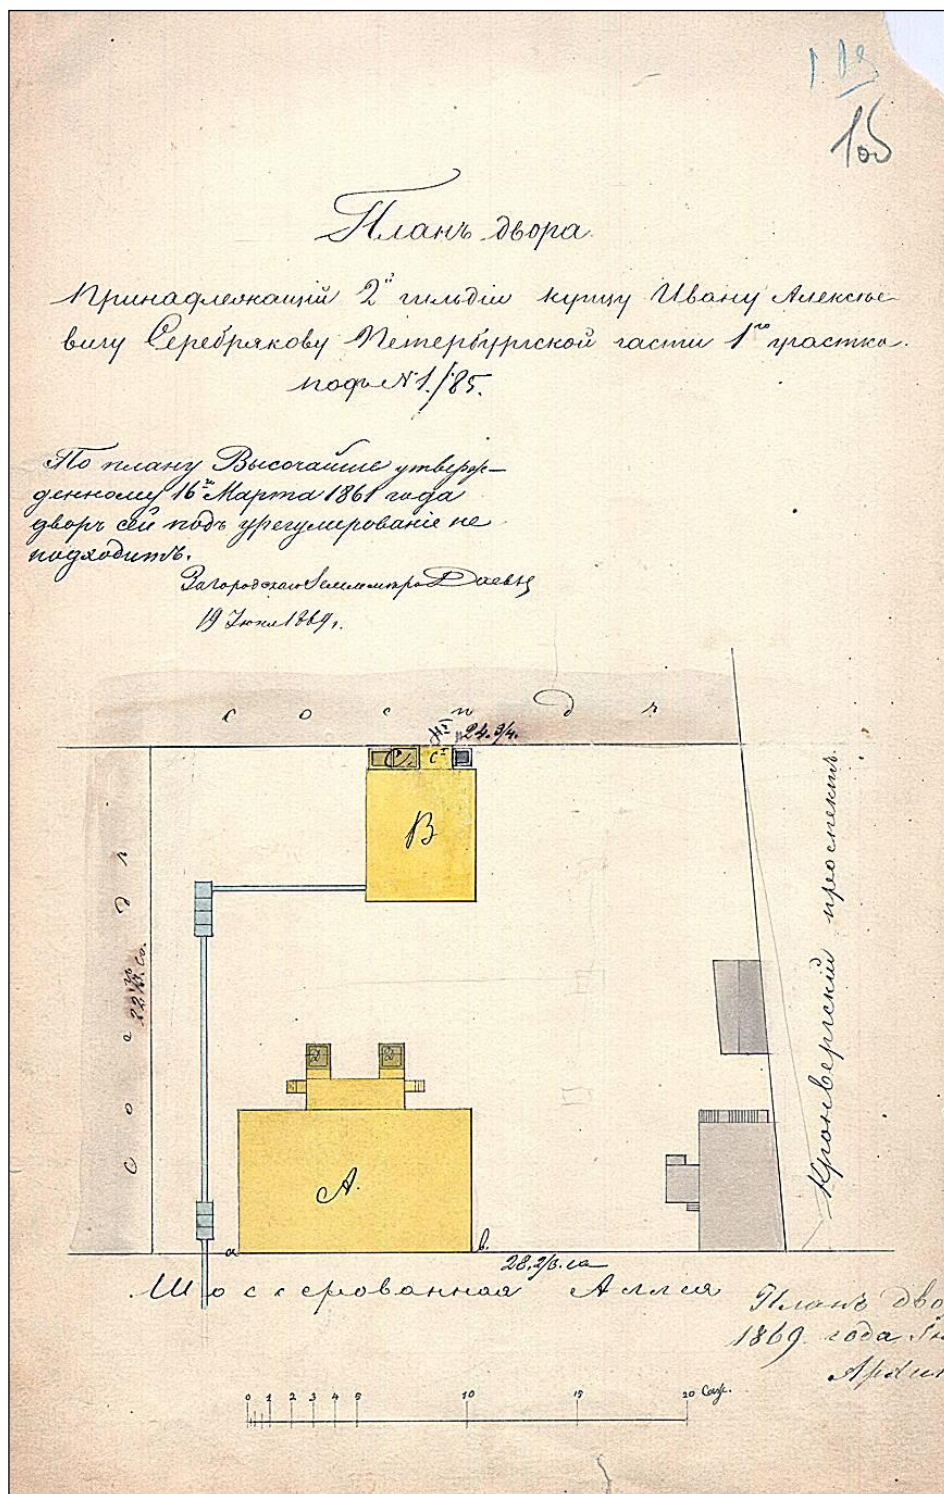 105
Планъ двора
принадлежащій 2й гильдіи купцу Ивану Алексѣе-
вичу Серебрякову Петербургской части 1го участка
подъ № 1/85.
По плану Высочайше утверж-
денному 16го Марта 1861 года
дворъ сей подъ урегулированіе не
подходитъ.
19 Іюня 1869 г.
сосѣдъ
24.3/4.
C.
C
B
сосѣдъ
Кронверкскій проспектъ.
D
D
A.
a
b.
28.2/3. са
Шоссерованная Аллея
Планъ дво
1869 года
0 1 2 3 4 5 10 15 20 Саж.